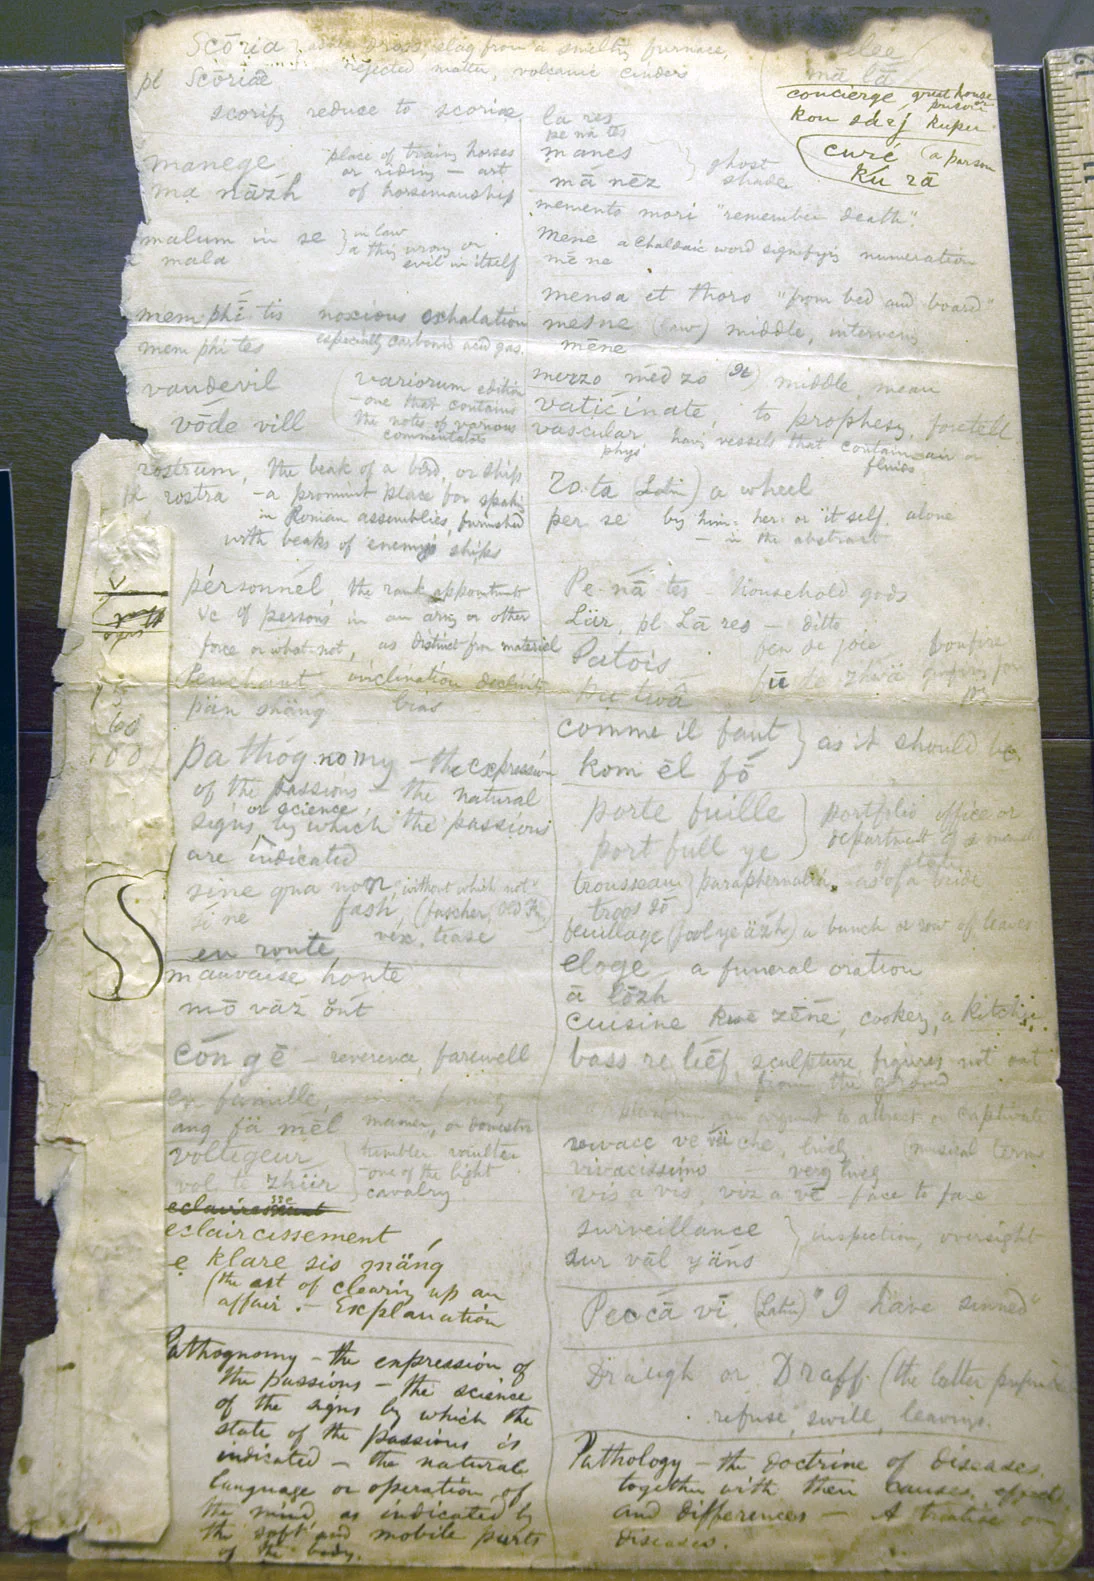 Scōria dross, slag from a smeltg furnace,
pl Scōriae rejected matter, volcanic cinders
scorify reduce to scoriae
manege place of traing horses
ma nāzh or riding — art
of horsemanship
malum in se } in law
mala a thig wrong or
evil in itself
mem phī tis noxious exhalation
mem phi tes especially carbonic acid gas.
vaudevil
vōde vill
variorum edition
– one that contains
the notes of various
commentators
rostrum, the beak of a bird, or ship
pl rostra – a prominent place for speakig
in Roman assemblies, furnished
with beaks of enemy's ships
personnél, the rank appointments
&c of persons in an army or other
force or what-not, as distinct from materiel
Penchant inclination declivity
pän shäng bias
pathógnomy – the expression
of the passions – the natural
or science
signs, by which the passions
are indicated
sine qua non, without which not
si ne
fash, (fascher, Old Fr)
vex. tease
en route
mauvaise honte
mō vāz ōnt
cón gē – reverence, farewell
en famille,
ang fä mēl manner, or domestic
voltigeur } tumbler vaulter
vol te zhür – one of the light
cavalry.
eclaircissement
e klare sis mäng
(the act of clearing up an
affair. – Explanation
Pathognomy – the expression of
the passions – the science
of the signs by which the
state of the passions is
indicated – the natural
language or operation of
the mind, as indicated by
the soft and mobile parts
of the body.
mā lā
concierge, great house
prison
kon sárj kuper
curé (a parson
ku rā
la res
pe na tes
manes } ghost
mā nēz shade
memento mori "remember death".
mene a Chaldaic word signifyig numeration
mē ne
mensa et thoro "from bed and board"
mesne (law) middle, interveng
mēne
mezzo méd zo (It) middle, mean
vaticínate, to prophesy, foretell
vascular, havig vessels that contain air or
phys fluids
Ro-ta (Latin) a wheel
per se by him- her- or it self. alone
– in the abstract
Pe-nā tes – household gods
Lär, pl. Lā res – ditto
Patois
feu de joie, bonfire
fū de zhwä
comme il faut } as it should be.
kom ēl fō
porte fuille } portfolio office or
port full ye department of a
of state
trousseau } paraphernalia, – as of a bride
troos sō
feuillage (fool ye äzh) a bunch or row of leaves
eloge – a funeral oration
ā lōzh
cuisine kwē zēne, cookery, a kitchen
bass re lief, sculpture, figures not out
from the ground
ad captandum an argumt to attract or captivate
vivace ve vä che, lively (musical term
vivacissimo — very lively
vis a vis, viz a vē – face to face
surveillance } inspection, oversight
sur vāl yäns
Peccā vī, (Latin) "I have sinned"
Draugh or Draff (the latter
refuse, swill, leavings.
Pathology – the doctrine of diseases,
together with their causes, effects
and differences – A treatise on
diseases.